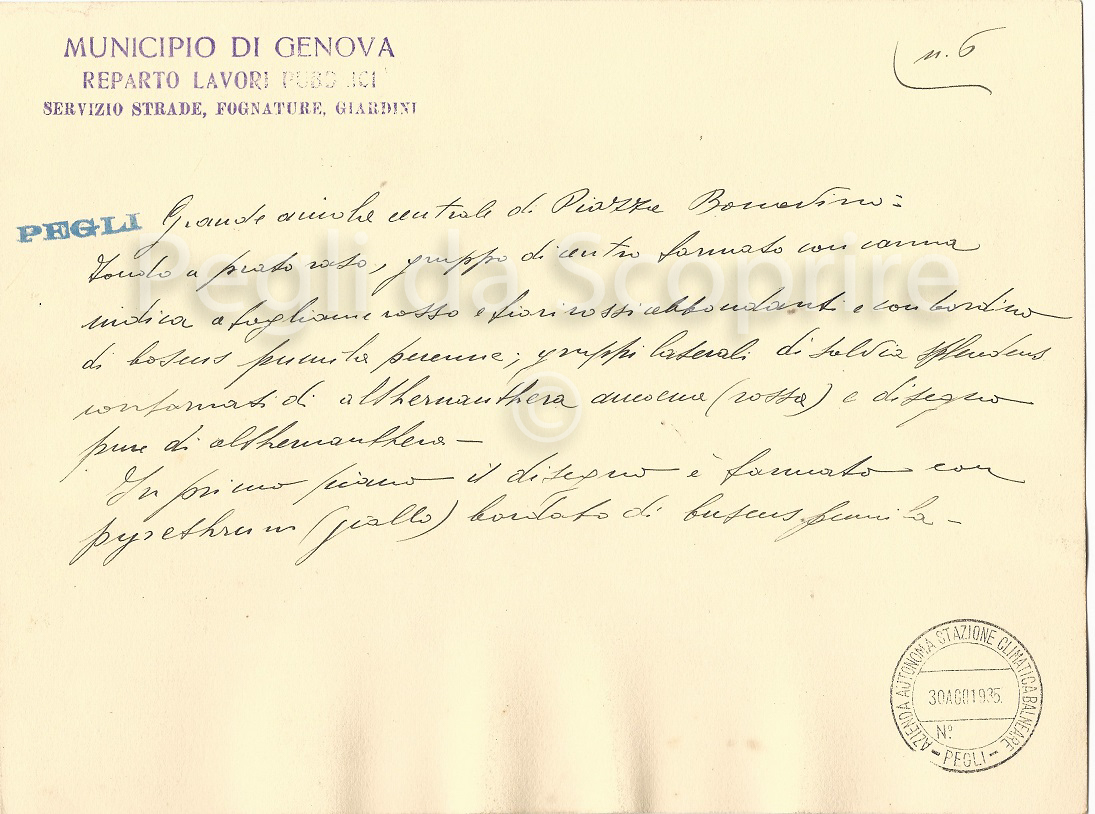 MUNICIPIO DI GENOVA
REPARTO LAVORI PUBBLICI
SERVIZIO STRADE, FOGNATURE, GIARDINI
n. 6
PEGLI
Grande aiuola centrale di Piazza Bonavino =
Fondo a prato raso, gruppo di centro formato con canna
indica a fogliame rosso e fiori rossi abbondanti e con bordino
di boscus pumila perenne; gruppi laterali di salvia splendens
contornati di althernanthera amoena (rossa) e disegno
pure di althernanthera —
In primo piano il disegno è formato con
pyrethrum (giallo) bordato di buscus pumila —
Pegli da Scoprire
©
AZIENDA AUTONOMA STAZIONE CLIMATICA BALNEARE
30 AGO 1935.
N°
- PEGLI -